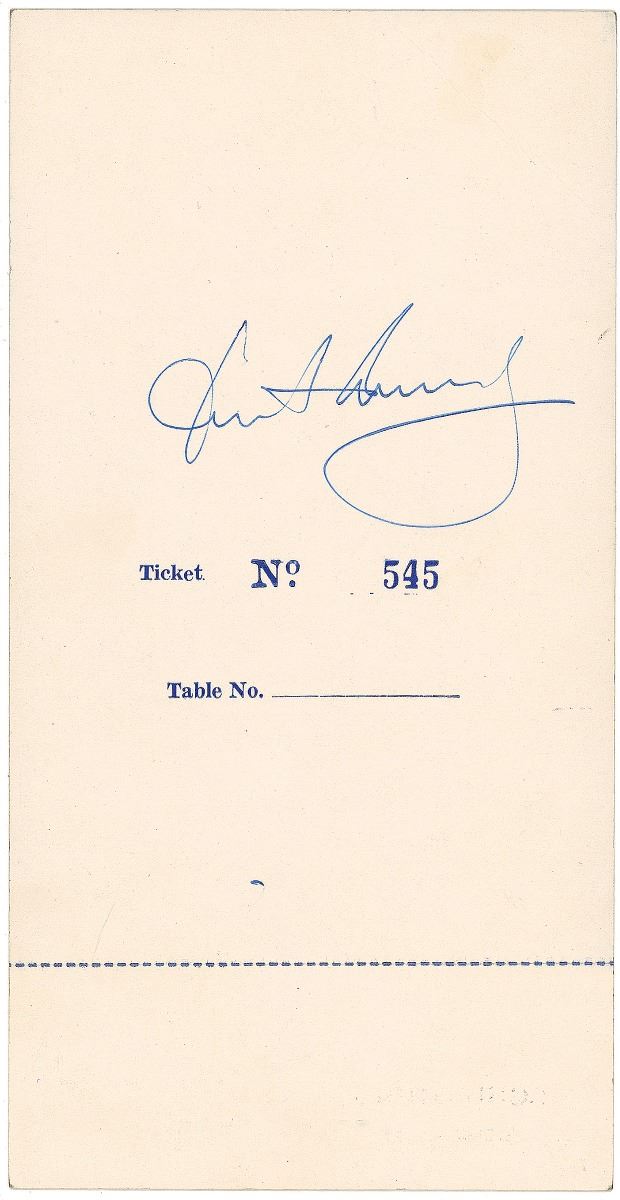 Ticket No. 545
Table No.